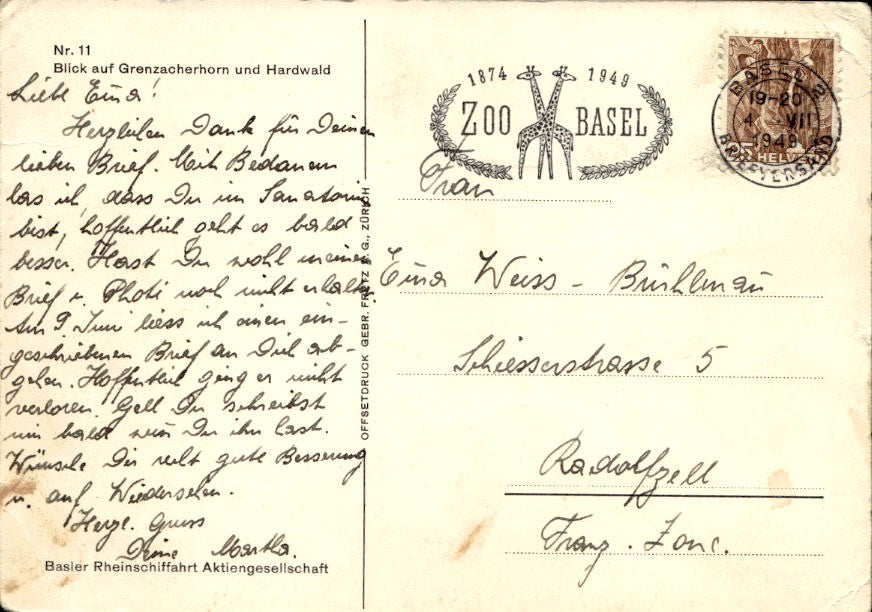 Nr. 11
Blick auf Grenzacherhorn und Hardwald
Liebe Erna!
Herzlichen Dank für Deinen
lieben Brief. Mit Bedauern
las ich, dass Du im Sanatorium
bist, hoffentlich geht es bald
besser. Hast Du wohl meinen
Brief u. Photi noch nicht erhalten
Am 9 Juni liess ich einen ein-
geschriebenen Brief an Dich ab-
gehen. Hoffentlich ging er nicht
verloren. Gell Du schreibst
mir bald wenn Du ihn hast.
Wünsche Dir recht gute Besserung
u. auf Wiedersehen.
Herzl. Gruss
Deine Martha.
Basler Rheinschiffahrt Aktiengesellschaft
OFFSETDRUCK GEBR. FRETZ A.G., ZÜRICH
1874 1949
ZOO BASEL
BASEL 2
19-20
4. VII
1949
BRIEFVERSAND
HELVETIA
Frau
Erna Weiss - Bürhlmann
Schiesserstrasse 5
Radolfzell
Franz. Zone.